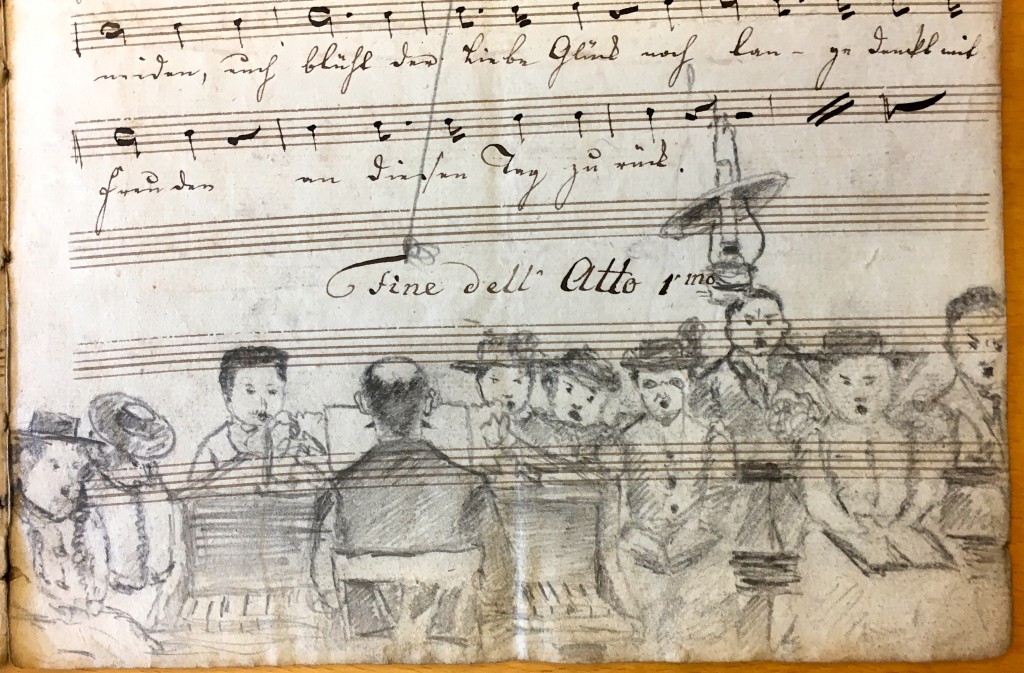 neiden, euch blüht der Liebe Glück noch lan - ge denkt mit
freu den an diesen Tag zu rück.
Fine dell' Atto 1mo